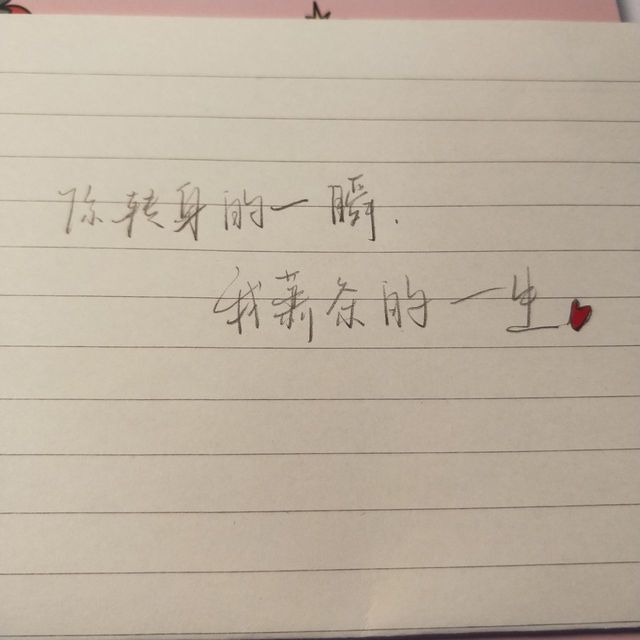 你转身的一瞬.
我萧条的一生